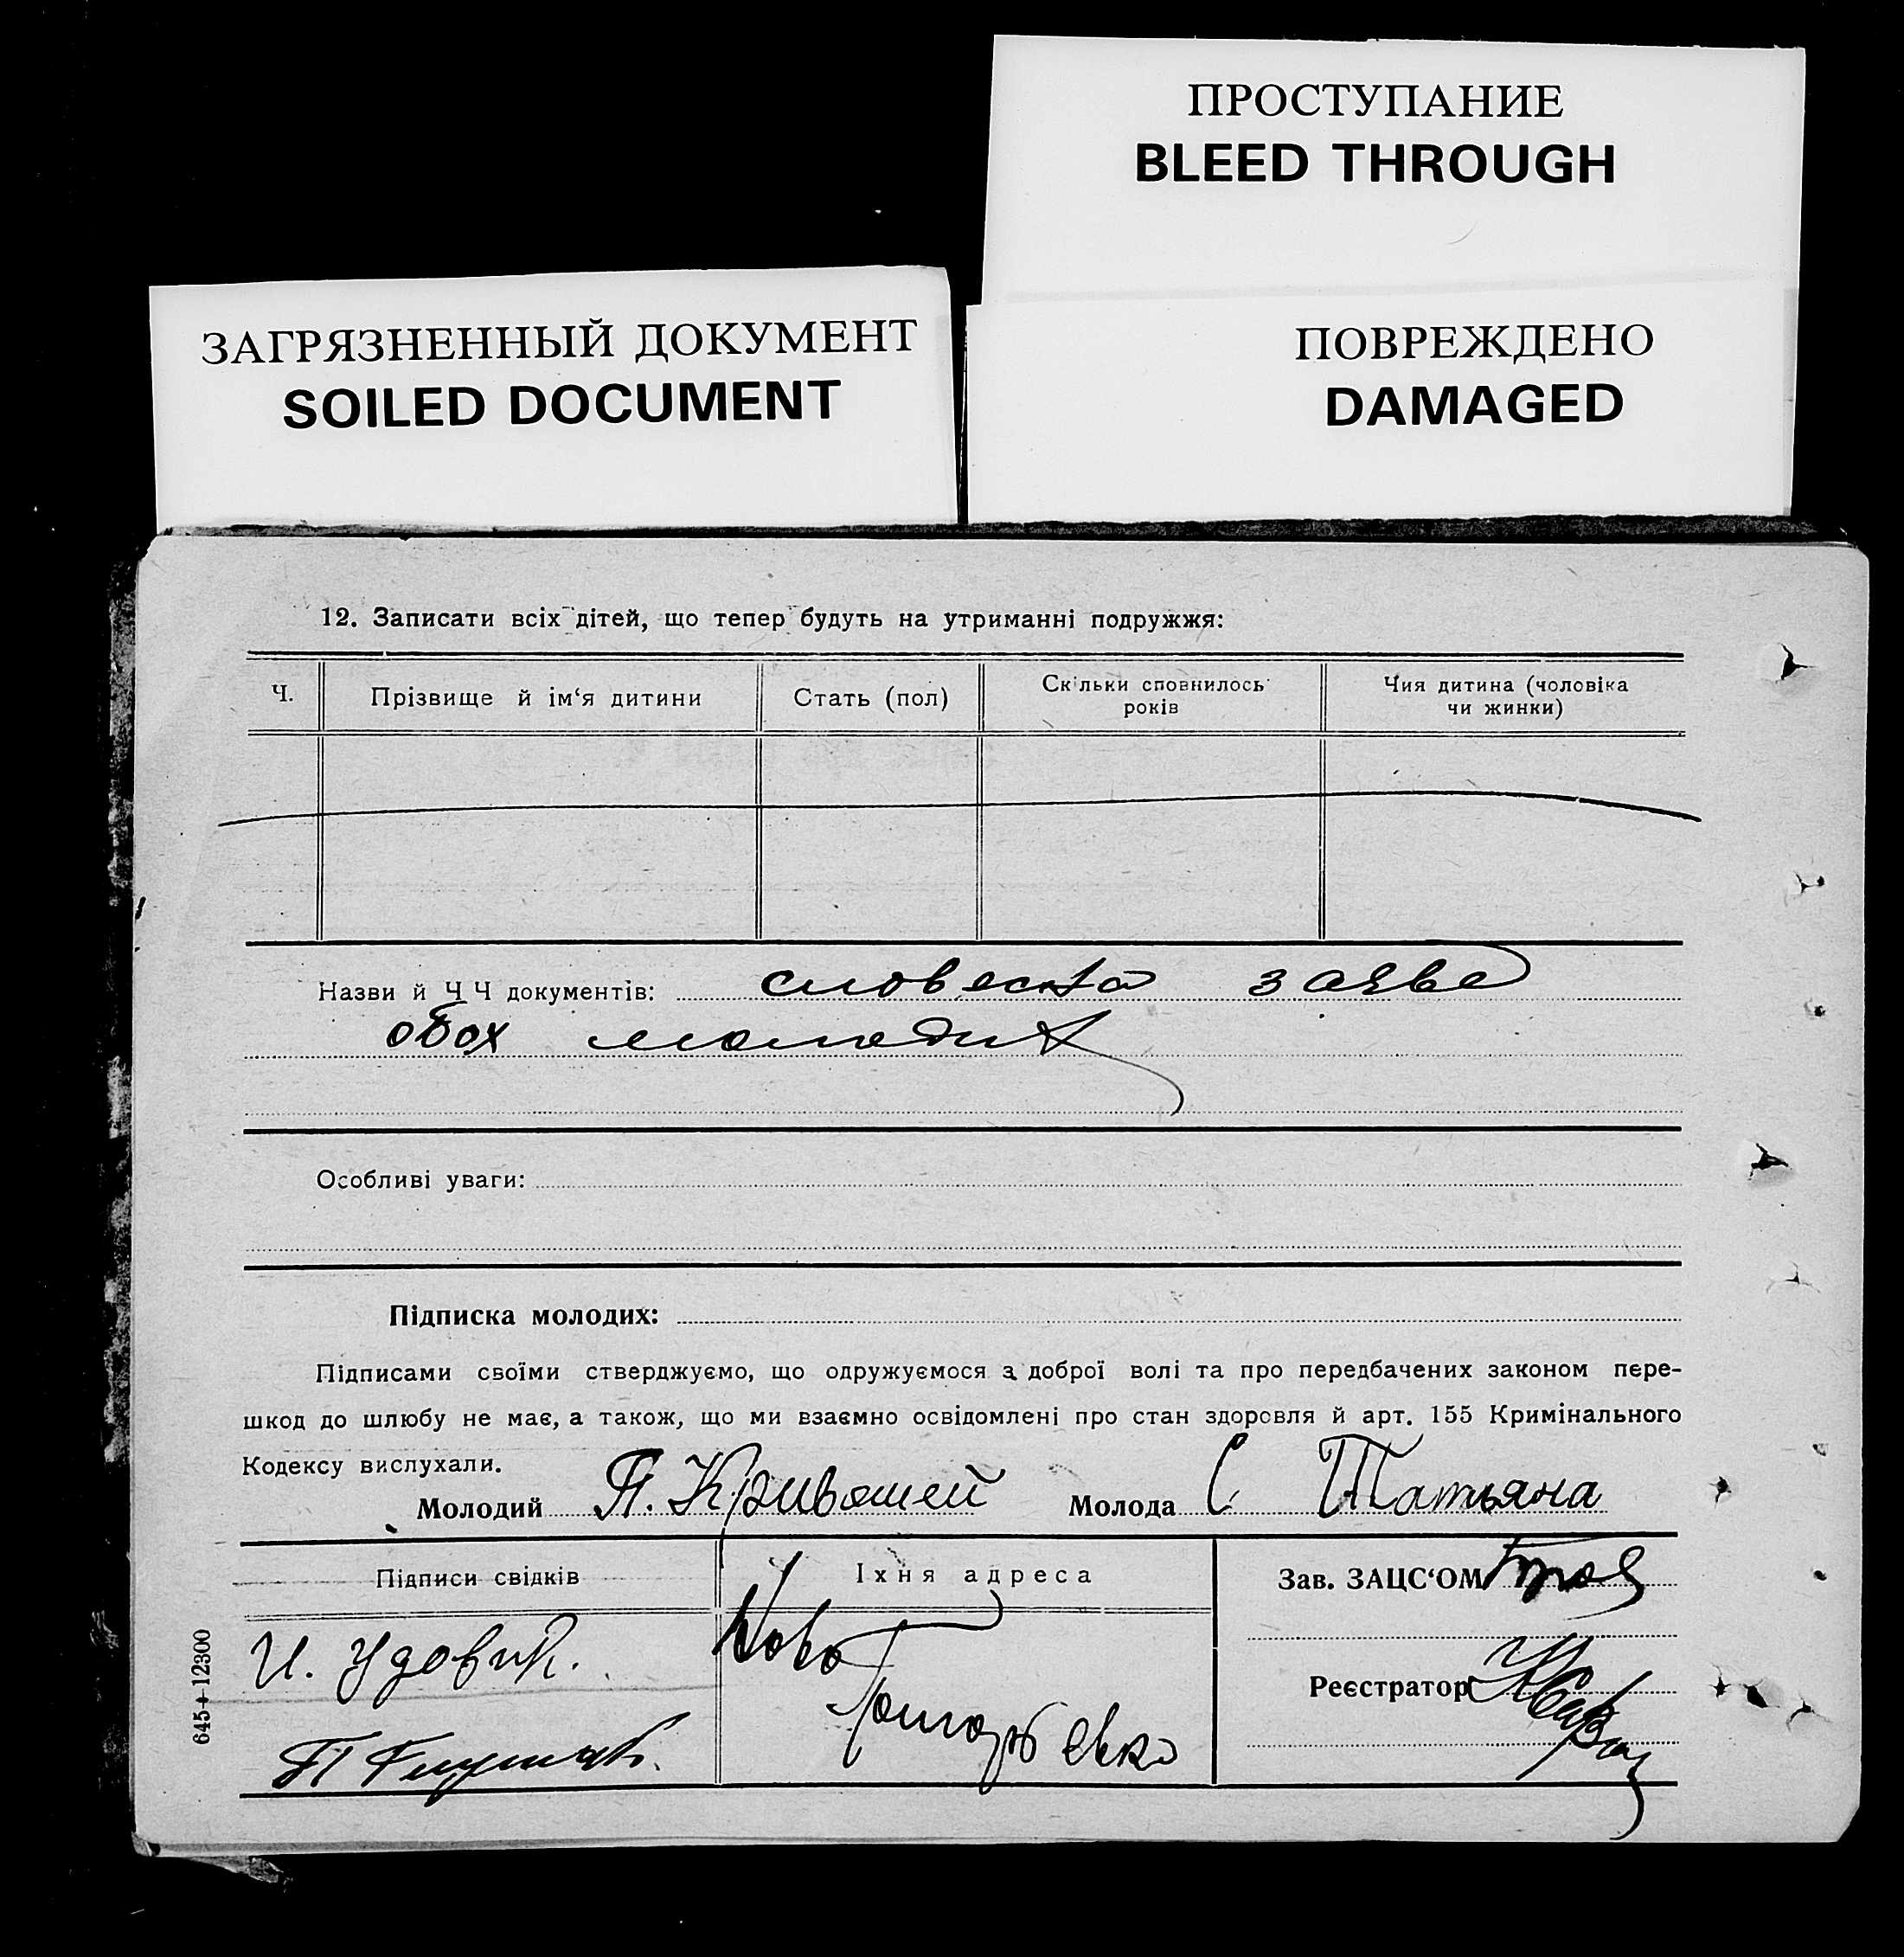 ПРОСТУПАНИЕ
BLEED THROUGH
ЗАГРЯЗНЕННЫЙ ДОКУМЕНТ
SOILED DOCUMENT
ПОВРЕЖДЕНО
DAMAGED
12. Записати всіх дітей, що тепер будуть на утриманні подружжя:
Ч. Прізвище й ім‘я дитини Стать (пол) Скільки сповнилось років Чия дитина (чоловіка чи жинки)
Назви й Ч Ч документів: словесна заява
обох молодих
Особливі уваги:
Підписка молодих:
Підписами своїми стверджуємо, що одружуємося з доброї волі та про передбачених законом пере-
шкод до шлюбу не має, а також, що ми взаємно освідомлені про стан здоровля й арт. 155 Кримінального
Кодексу вислухали.
Молодий П. Кривошей Молода С Татьяна
Підписи свідків Їхня адреса Зав. ЗАЦС‘ОМ
И. Удовик. Ново
Реєстратор
П
645+12300